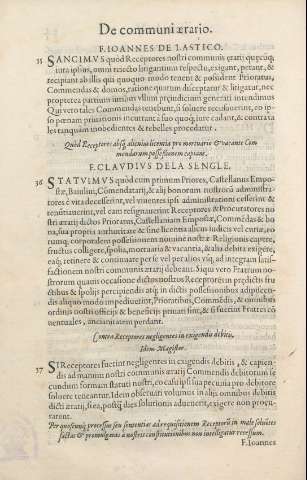 De communi ærario.
F. IOANNES DE LASTICO.
35 SANCIMVS quòd Receptores nostri communis ærarij quęcūq;
iura ipsius, omni reiecto litigantium respectu, exigant, petant, &
recipiant ab illis qui quoquo modo tenent & possident Prioratus,
Commendas & domos, ratione quarum disceptatur & litigatur, nec
propterea partium
Qui verò tales Commendas tenebunt, si soluere recusauerint, eo ip-
so pœnam priuationis incurrant à suo quoq; iure cadant, & contra ta
les tanquam inobedientes & rebelles procedatur.
Quòd Receptores absq; alicuius licentia pro mortuario & vacante Com
mendarum possessionem capiant.
F. CLAVDIVS DE LA SENGLE.
36 STATVIMVS quòd cum primum Priores, Castellanus Empo-
stæ, Baiuliui, Commendatarij, & alij bonorum nostrorū administra-
tores è vita decesserint, vel viuentes ipsi administrationi cesserint &
renūtiauerint, vel eam resignauerint Receptores & Procuratores no
stri ærarij dictos Prioratus, Castellaniam Empostæ, Commēdas & bo
na, sua propria authoritate & sine licentia alicus iudicis vel curiæ, eo-
rumq; corporalem possessionem nomine nostræ Religionis capere,
fructus colligere, spolia, mortuaria & vacantia, & alia debita exigere,
eaq; retinere & continuare per se vel per alios vsq; ad integram satis-
factionem nostri communis ærarij debeant. Siqui verò Fratrum no-
strorum quauis occasione dictos nostros Receptores in prædictis fru
ctibus & spolijs percipiendis atq; in dictis possessionibus adipiscen-
dis aliquo modo impediuerint, Prioratibus, Commēdis, & omnibus
ordinis nostri officijs & beneficijs priuati sint, & si fuerint Fratres cō
uentuales, ancianitatem perdant.
Contra Receptores negligentes in exigendis debitis.
Idem Magister.
37 SI Receptores fuerint negligentes in exigendis debitis, & capien-
dis ad manum nostri communis ærarij Commendis debitorum se
cundum formam statuti nostri, eo casu ipsi sua pecunia pro debitore
soluere teneantur. Idem obseruari volumus in alijs omnibus debitis
dicti ærarij, si ea, postq; dies solutionis aduenerit, exigere non procu-
rarent.
Per quoscunq; processus seu sententias ad requisitionem Receptorū in male soluētes
factas & promulgatas à nostris constitutionibus non intelligatur recessum.
F. Ioannes